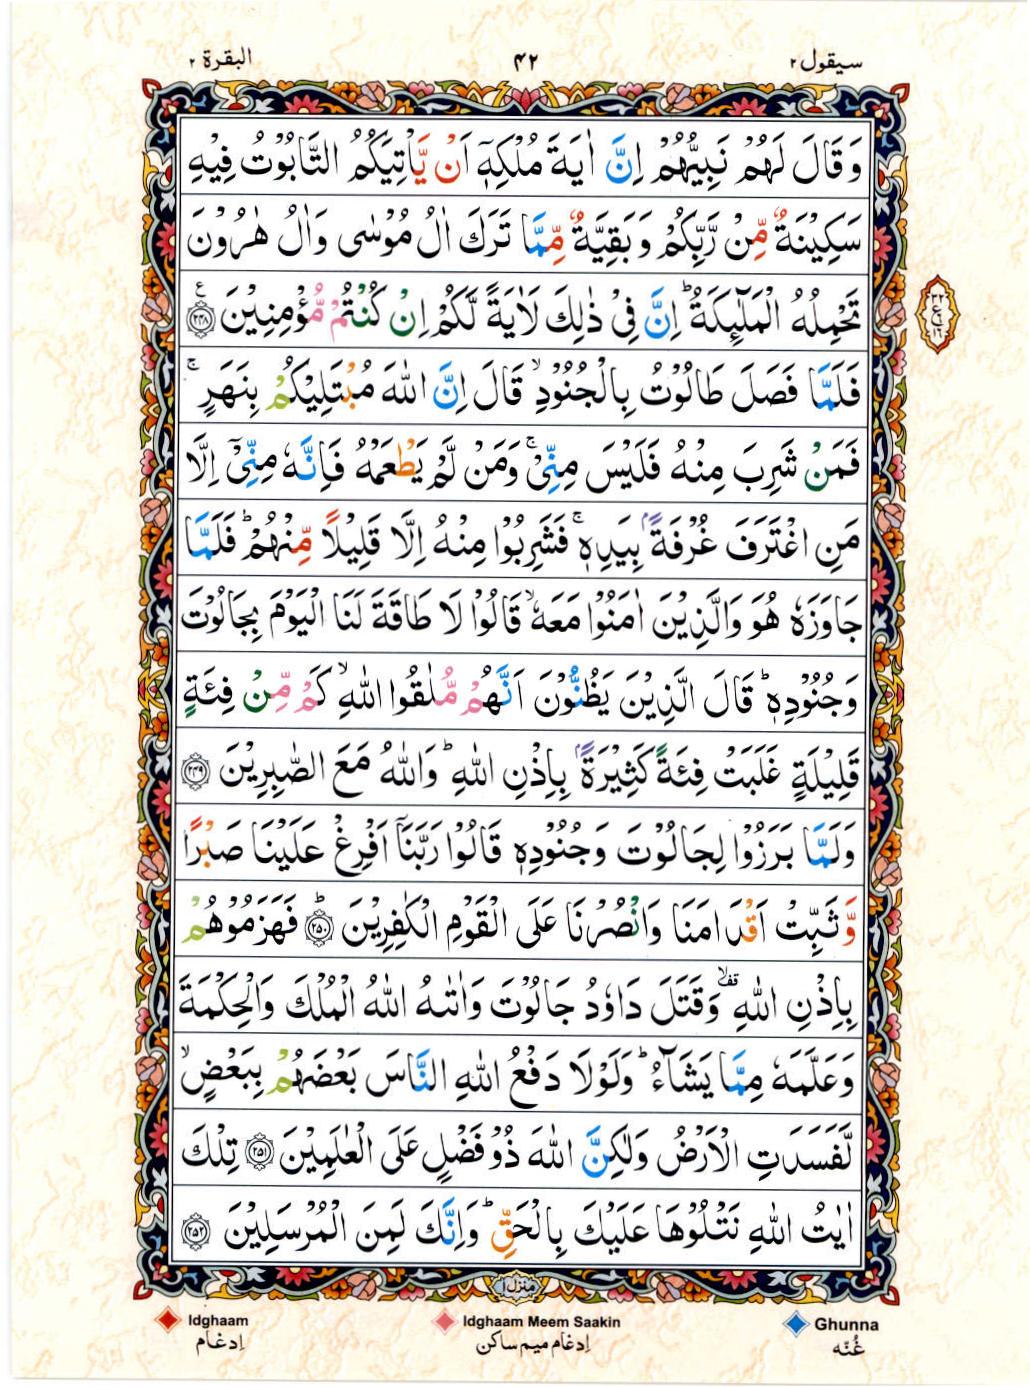 سيقول ٢
٤٢
البقرة ٢
وَقَالَ لَهُمْ نَبِيُّهُمْ اِنَّ اٰيَةَ مُلْكِهٖٓ اَنْ يَّاْتِيَكُمُ التَّابُوْتُ فِيْهِ
سَكِيْنَةٌ مِّنْ رَّبِّكُمْ وَبَقِيَّةٌ مِّمَّا تَرَكَ اٰلُ مُوْسٰى وَاٰلُ هٰرُوْنَ
تَحْمِلُهُ الْمَلٰٓئِكَةُ ؕ اِنَّ فِيْ ذٰلِكَ لَاٰيَةً لَّكُمْ اِنْ كُنْتُمْ مُّؤْمِنِيْنَ ﴿٢٤٨﴾ ع
فَلَمَّا فَصَلَ طَالُوْتُ بِالْجُنُوْدِ ۙ قَالَ اِنَّ اللّٰهَ مُبْتَلِيْكُمْ بِنَهَرٍ ۚ
فَمَنْ شَرِبَ مِنْهُ فَلَيْسَ مِنِّيْ ۚ وَمَنْ لَّمْ يَطْعَمْهُ فَاِنَّهٗ مِنِّيْٓ اِلَّا
مَنِ اغْتَرَفَ غُرْفَةًۢ بِيَدِهٖ ۚ فَشَرِبُوْا مِنْهُ اِلَّا قَلِيْلًا مِّنْهُمْ ؕ فَلَمَّا
جَاوَزَهٗ هُوَ وَالَّذِيْنَ اٰمَنُوْا مَعَهٗ ۙ قَالُوْا لَا طَاقَةَ لَنَا الْيَوْمَ بِجَالُوْتَ
وَجُنُوْدِهٖ ؕ قَالَ الَّذِيْنَ يَظُنُّوْنَ اَنَّهُمْ مُّلٰقُوا اللّٰهِ ۙ كَمْ مِّنْ فِئَةٍ
قَلِيْلَةٍ غَلَبَتْ فِئَةً كَثِيْرَةًۢ بِاِذْنِ اللّٰهِ ؕ وَاللّٰهُ مَعَ الصّٰبِرِيْنَ ﴿٢٤٩﴾
وَلَمَّا بَرَزُوْا لِجَالُوْتَ وَجُنُوْدِهٖ قَالُوْا رَبَّنَآ اَفْرِغْ عَلَيْنَا صَبْرًا
وَّثَبِّتْ اَقْدَامَنَا وَانْصُرْنَا عَلَى الْقَوْمِ الْكٰفِرِيْنَ ﴿٢٥٠﴾ ؕ فَهَزَمُوْهُمْ
بِاِذْنِ اللّٰهِ ۙ قف وَقَتَلَ دَاوٗدُ جَالُوْتَ وَاٰتٰىهُ اللّٰهُ الْمُلْكَ وَالْحِكْمَةَ
وَعَلَّمَهٗ مِمَّا يَشَآءُ ؕ وَلَوْلَا دَفْعُ اللّٰهِ النَّاسَ بَعْضَهُمْ بِبَعْضٍ ۙ
لَّفَسَدَتِ الْاَرْضُ وَلٰكِنَّ اللّٰهَ ذُوْ فَضْلٍ عَلَى الْعٰلَمِيْنَ ﴿٢٥١﴾ تِلْكَ
اٰيٰتُ اللّٰهِ نَتْلُوْهَا عَلَيْكَ بِالْحَقِّ ؕ وَاِنَّكَ لَمِنَ الْمُرْسَلِيْنَ ﴿٢٥٢﴾
منزل ١
Idghaam
Idghaam Meem Saakin
Ghunna
اِدغام
اِدغام میم ساکن
غُنّه